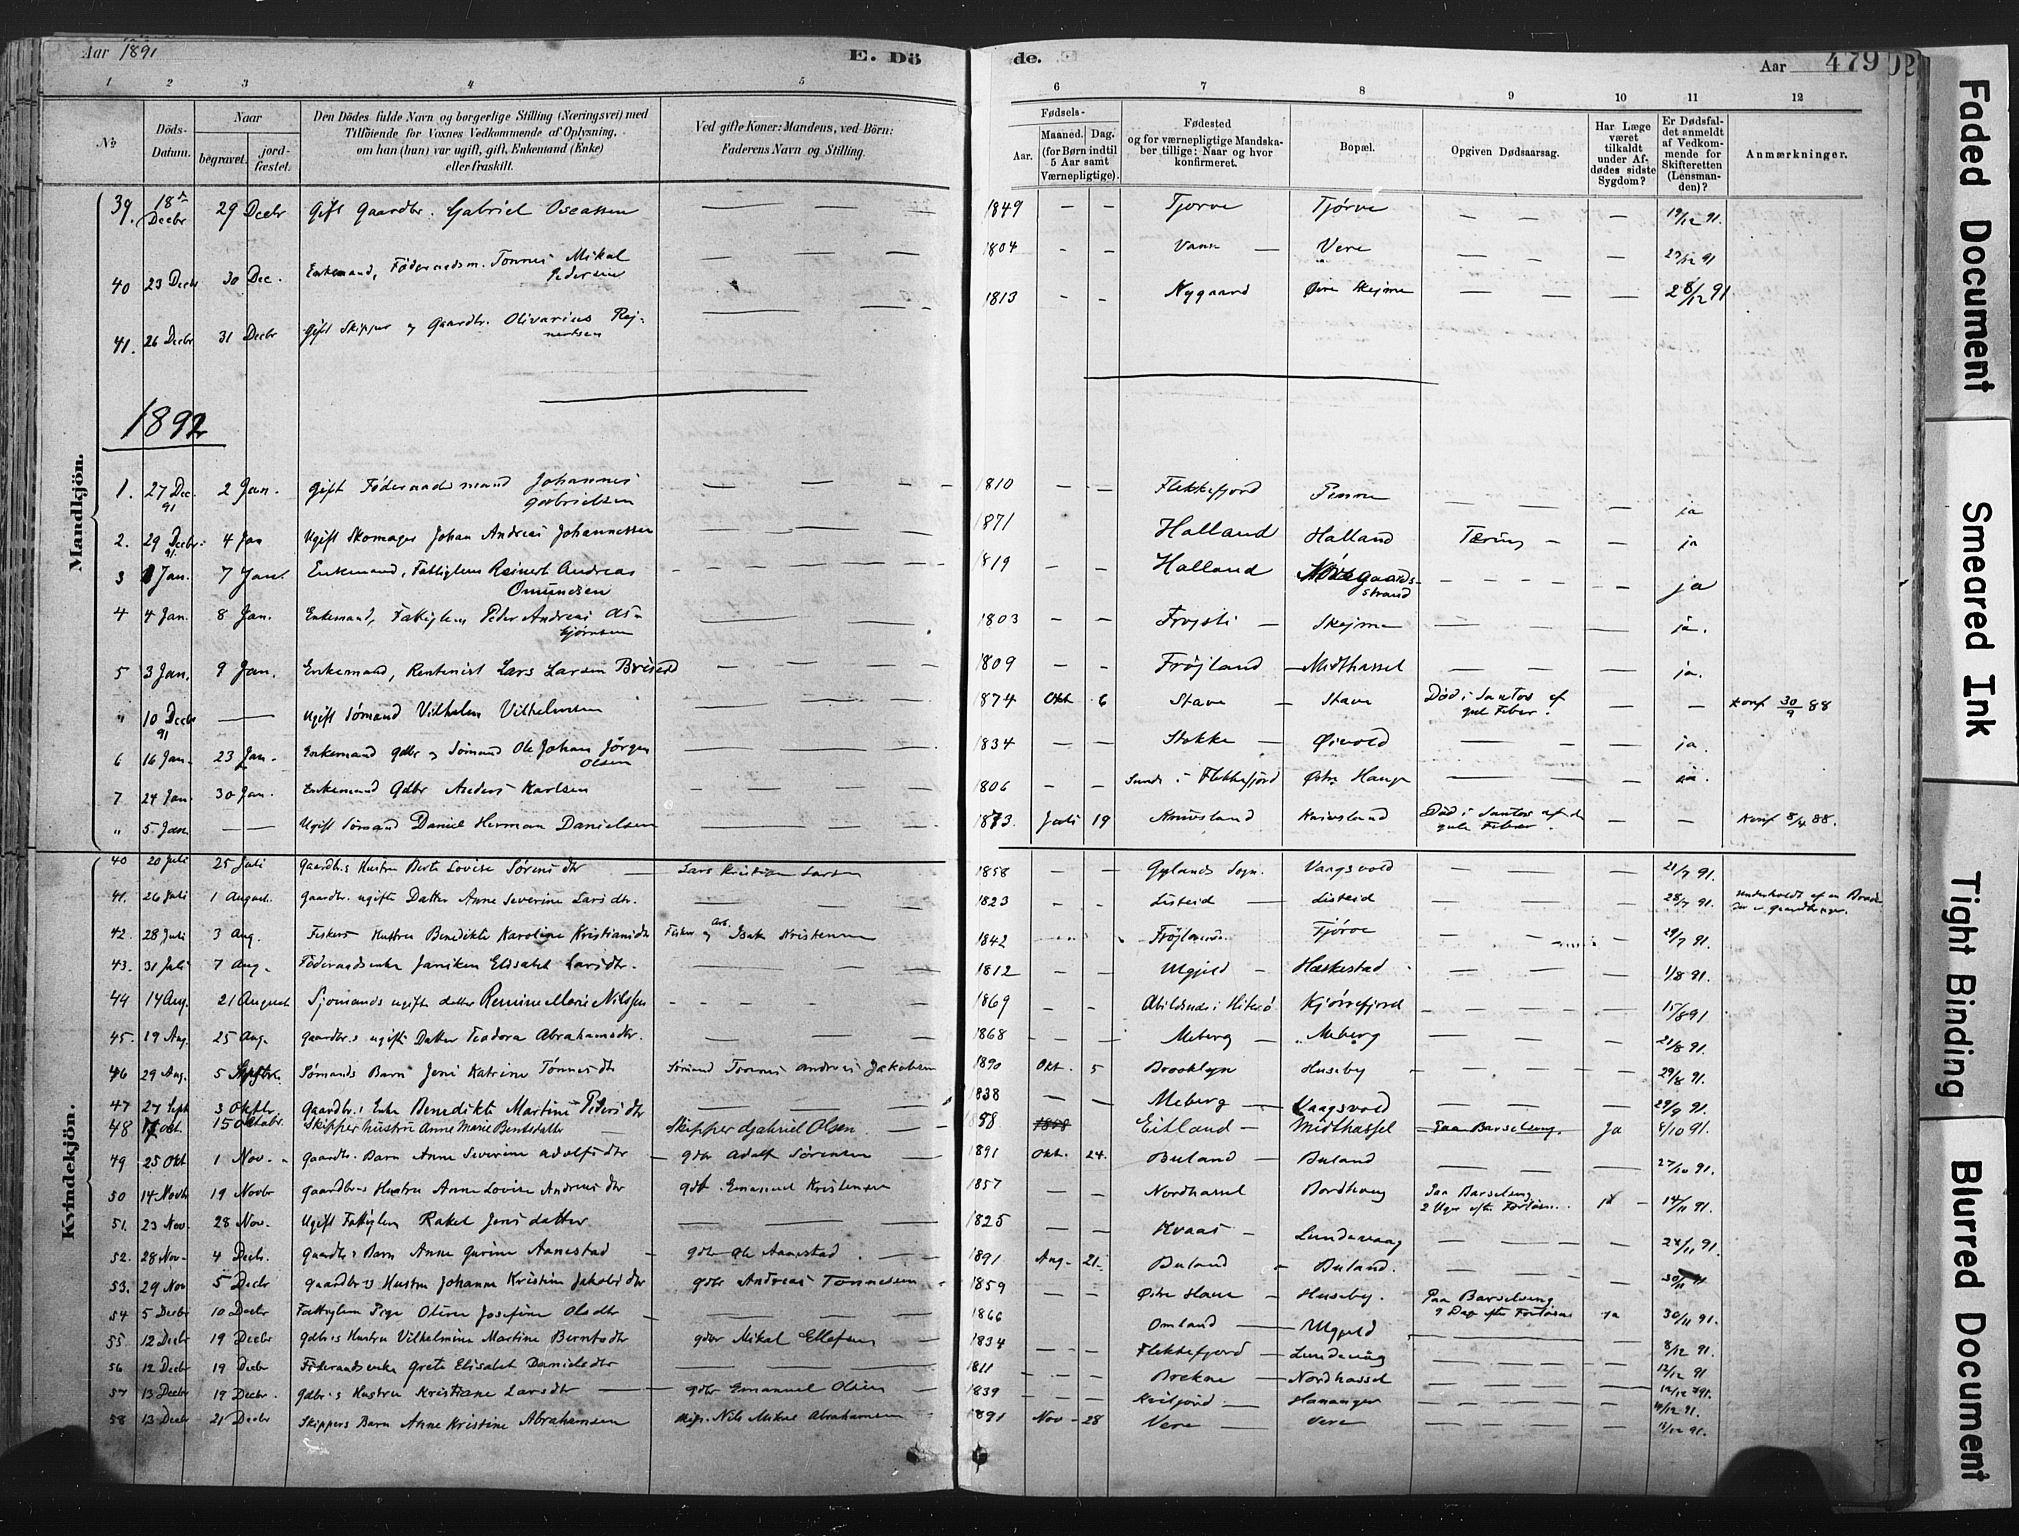 Aar 1891
E. Dö
de.
Aar
479
1 2 3 4 5 6 7 8 9 10 11 12
№
Döds-Datum.
Naar
begravet.
jordfæstet.
Den Dödes fulde Navn og borgerlige Stilling (Næringsvei) med
Tilföiende for Voxnes Vedkommende af Oplysning,
om han (hun) var ugift, gift, Enkemand (Enke)
eller fraskilt.
Ved gifte Koner: Mandens, ved Börn:
Faderens Navn og Stilling.
Fødsels-
Aar.
Maaned. Dag.
(for Børn indtil
5 Aar samt
Værnepligtige).
Fødested
og for værnepligtige Mandskaber tillige: Naar og hvor
konfirmeret.
Bopæl.
Opgiven Dødsaarsag.
Har Læge
været
tilkaldt
under Afdødes sidste
Sygdom?
Er Dødsfaldet anmeldt
af Vedkommende for
Skifteretten
(Lensmanden)?
Anmærkninger.
Mandkjön.
39. 18de Decbr 29 Decbr Gift Gaardbr. Gabriel Oseassen — 1849 — — Tjørve Tjørve — — — 19/12 91.
40 23 Decbr 30 Dec. Enkemand, Føderaadsm. Tønnes Mikal Pedersen — 1804 — — Vanse — Vere — — — 23/12 91
41. 26 Decbr 31 Decbr Gift Skipper og Gaardbr. Olivarius Rejnertsen — 1813 — — Nygaard Øvre Skejme — — — 28/12 91
1892
1. 27 Dec. 91 2 Jan. Gift Føderaadsmand Johannes Gabrielsen — 1810 — — Flekkefjord Penne — — — ja
2. 29 Decbr. 91. 4 Jan Ugift Skomager Johan Andreas Johannessen — 1871 Halland Halland Tæring — — ja
3 1 Jan. 7 Jan. Enkemand, Fattiglem Reinert Andreas Omundsen — 1819 — — Halland Ødegaardsstrand — — ja
4 4 Jan. 8 Jan. Enkemand, Fattiglem Peder Andreas Asbjørnsen — 1803 — — Frøjsti — Skejme — — ja.
5 3 Jan. 9 Jan. Enkemand, Rentenist Lars Larsen Briseid — 1809 — — Frøjland — Midthassel — — ja.
" 10 Decbr 91 — Ugift Sømand Vilhelm Vilhelmsen — 1874 Okt 6 Stave — Stave Død i Santos af gul Feber. — — Konf 30/9 88
6 16 Jan. 23 Jan. Enkemand Gdbr og Sømand Ole Johan Jørgen Olsen — 1834 — — Stokke — Øivold — — ja.
7 24 Jan. 30 Jan. Enkemand Gdbr Anders Karlsen — 1806 — — Sunde i Flekkefjord Østre Hauge — — ja.
" 5 Jan. — Ugift Sømand Daniel Herman Danielsen — 1873. Juli 19 Knivsland Knivsland Død i Santos af den gule Feber. — — Konf 8/4 88.
Kvindekjön.
40 20 Juli 25 Juli Gaardbr.s Hustru Berte Lovise Sørensdtr — Lars Kristian Larsen 1858 — — Gylands Sogn. Vaagsvold — — — 21/7 91.
41. 26 Juli 1 August. Gaardbr. ugifte Datter Anne Severine Larsdtr. — 1823 — — Listeid — Listeid — — — 28/7 91. underholdt af en Broder
42. 28 Juli 3 Aug. Fiskers Hustru Benedikte Karoline Kristiansdtr Fisker og Arb. Isak Kristensen 1842 Frøjland Tjørve — — 29/7 91.
43. 31 Juli 7 Aug. Føderaadsenke Janiken Elisabet Larsdtr. — 1812 — — Ulgjeld — Haskestad — — 1/8 91.
44 14 Aug. 21 August Sjømands ugifte datter Remine Marie Nilssen — 1869 — — Abildsnes i Hiterø Kjørrefjord — — 15/8 91
45. 19 Aug. 25 Aug. Gaardbr.s ugifte Datter Teodora Abrahamsdtr. — 1868 — — Meberg — Meberg — — 21/8 91.
46 29 Aug. 5 Septbr. Sømands Barn Jeni Katrine Tønnesdtr Sømand Tønnes Andreas Jakobsen 1890 Okt. 5 Brooklyn Huseby — — 29/8 91.
47 27 Sept 3 Oktbr. Gaardbr.s Enke Benedikte Martine Pedersdtr — 1838 — — Meberg — Vaagsvold — — 29/9 91.
48 7 Okt. 15 Oktobr. Skipper hustru Anne Marie Berntsdatter — Skipper Gabriel Olsen 1858 Eitland — Midthassel Paa Barselseng. Ja 8/10 91.
49 25 Okt 1 Nov. Gaardbr. Barn Anne Severine Adolfsdtr — gdbr Adolf Sørensen — 1891 Okt. 24. Buland — Buland — — 27/10 91.
50 14 Novbr 19 Novbr Gaardbr.s Hustru Anne Lovise Andreasdtr gdb. Emanuel Kristensen 1857 — — Nordhassel Bordhaug Paa Barselseng 2 Uger efter Forløsn. ja 14/11 91.
51. 23 Nov. 28 Nov. Ugift Fattiglem Rakel Jensdatter. — 1825 — — Kvaas — Lundevaag — — 24/11 91.
52. 28 Nov. 4 Decbr. Gaardbr.s Barn Anne Gurine Aanestad — gdbr Ole Aanestad. 1891 Aug. 21. Buland — Buland. — — 30/11 91
53. 29 Nov 5 Decbr Gaardbr.s Hustru Johanne Kristine Jakobsdtr gdbr Andreas Tønnesen 1859 — — Østre Hauge — Huseby. Paa Barselseng 9 Dage efter Forløsn. ja 30/11 91.
54 5 Decbr 10 Decbr Fattiglem Pige Oline Josefine Olsdtr — 1866 Omland — Ulgjeld — — 8/12 91.
55. 12 Decbr 19 Decbr gdbr.s Hustru Vilhelmine Martine Berntsdtr — gdbr Mikal Ellefsen 1834 — — Flekkefjord — Lundevaag — — 12/12 91
56 12 Decbr 19 Decbr Føderaadsenke Grete Elisabet Danielsdtr — 1811 — — Brekne — Nordhassel — — 12/12 91.
57 13 Decbr 19 Decbr. gdbr.s Hustru Kristiane Larsdtr — gdbr Emanuel Olsen 1839 — — Hananger — — 14/12 91.
58 13 Decbr 21 Decbr Skippers Barn Anne Kristine Abrahamsen Skip. Nils Mikal Abrahamsen 1891 Nov. 28 Vere — Vere — — 13/12 91.
Faded Document
Smeared Ink
Tight Binding
Blurred Document